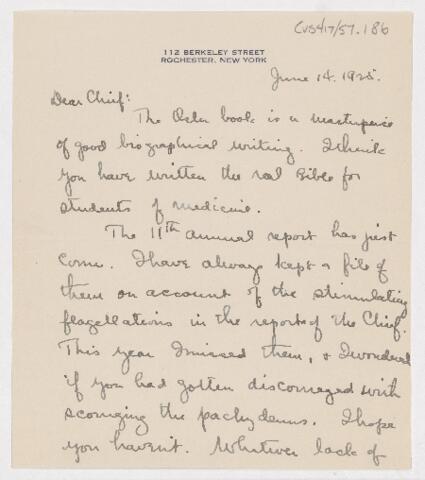 CUS417/57.186
112 BERKELEY STREET
ROCHESTER, NEW YORK
June 14. 1925.
Dear Chief:
The Osler book is a masterpiece
of good biographical writing. I think
you have written the real Bible for
students of medicine.
The 11th annual report has just
come. I have always kept a file of
them on account of the stimulating
flagellations in the report of the Chief.
This year I missed them, & I wondered
if you had gotten discouraged with
scourging the pachyderms. I hope
you haven't. Whatever lack of